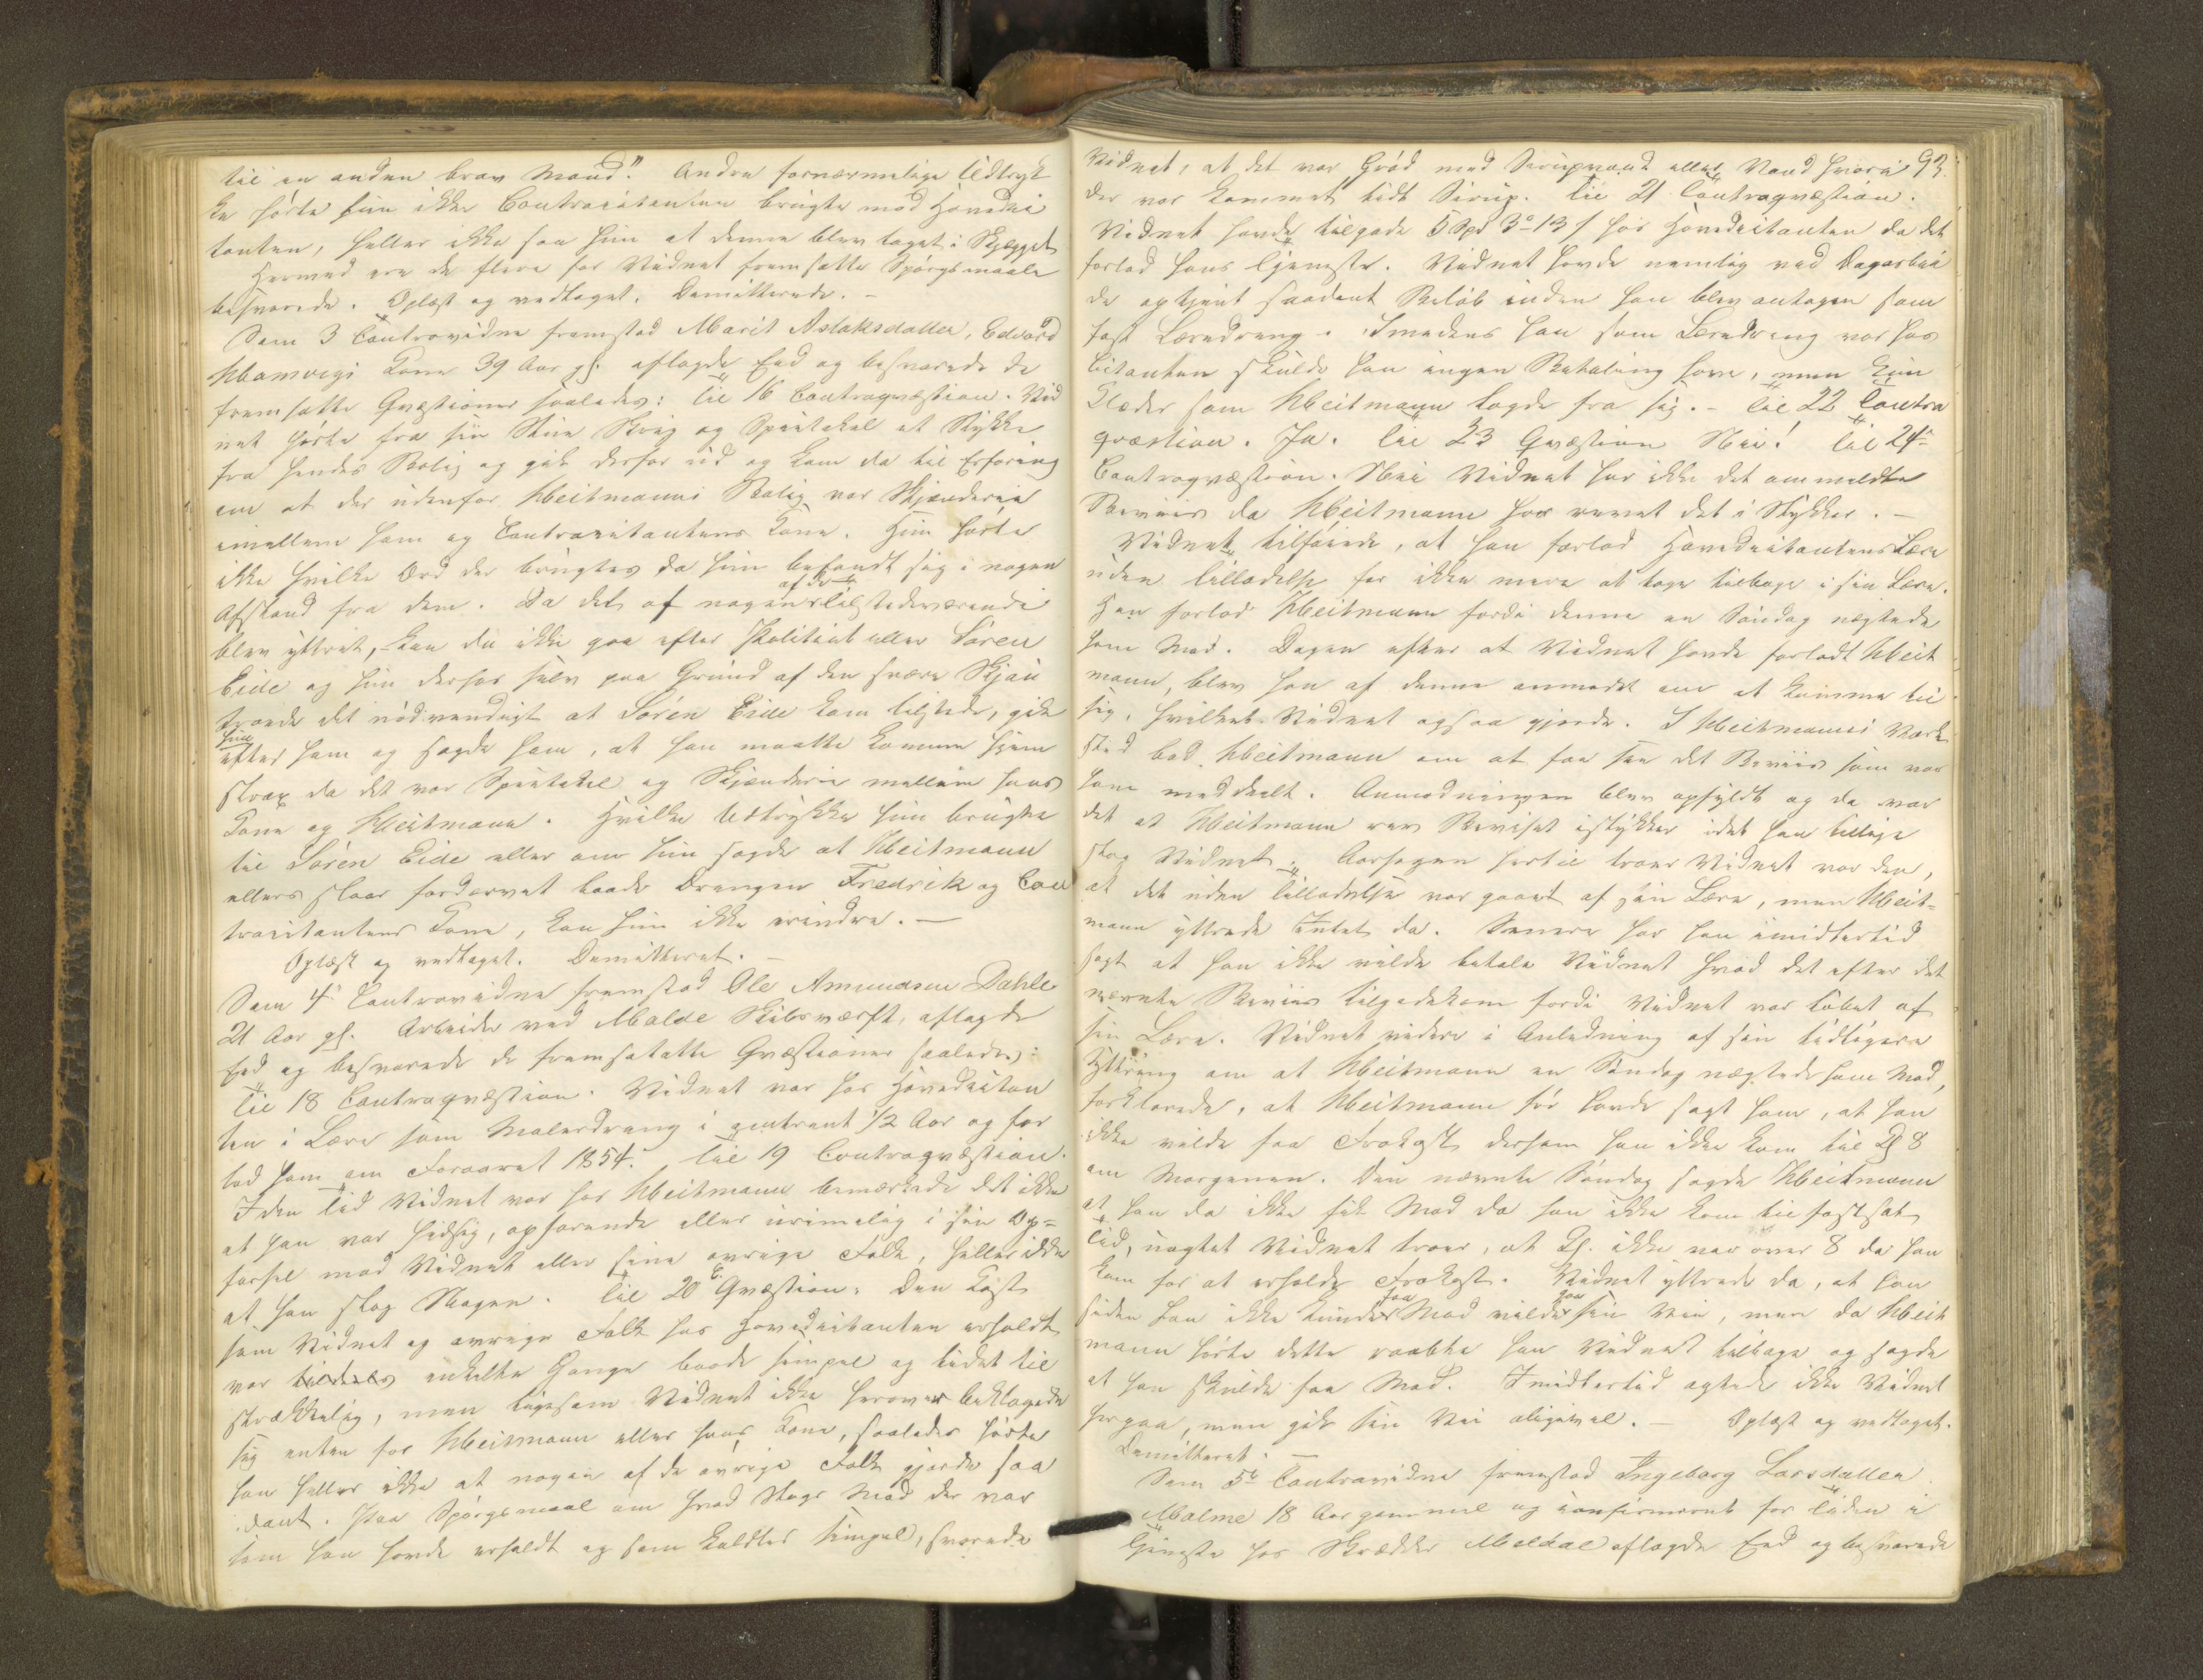 til en anden brav Mand." Andre fornærmelige Udtryk
ke hörte hun ikke Contracitantinen brugte mod Hovedci
tanten, heller ikke saa hun at denne blev taget i Skjægget
Hermed ere de flere for Vidnet fremsatte Spörgsmaale
besvarede. Oplæst og vedtaget. Demitterede. –
Som 3 Contravidne fremstod Marit Aslaksdatter, Edvard
Kone 39 Aar gl. aflagde Eed og besvarede de
fremsatte Qvæstioner saaledes: Til 16 Contraqvæstion. Vid
net hörte fra sin Stue Skrig og Spektakel et Stykke
fra hendes Bolig og gik derfor ud og kom da til Erfaring
om at der udenfor Weitmanns Bolig var Skjænderie
imellem ham og Contracitantens Kone. Hun hörte
ikke hvilke Ord der brugtes da hun befandt sig i nogen
Afstand fra dem. Da det af nogen af de Tilstedeværende
blev yttret, kan du ikke gaa efter Politiet eller Sören
Eide og hun derfor selv paa Grund af den svære Skjæn
troede det nödvendigt at Sören Eide kom tilstede, gik
hun
efter ham og sagde ham, at han maatte komme hjem
strax da det var Spektakel og Skjænderie mellem hans
Kone og Weitmann. Hvilke Udtrykke hun brugte
til Sören Eide eller om hun sagde at Weitmann
ellers slaar fordærvet baade Drengen Fredrik og Con
tracitantens Kone, kan hun ikke erindre. –
Oplæst og vedtaget. Demitteret. –
Som 4de Contravidne fremstod Ole Amundsen Dahle
21 Aar gl. Arbeider ved Molde Skibsværft, aflagde
Eed og besvarede de fremsatatte Qvæstioner saaledes:
Til 18 Contraqvæstion. Vidnet var hos Hovedcitan
ten i Lære som Malerdreng i omtrent 1/2 Aar og for
lod ham om Foraaret 1854. Til 19 Contraqvæstion.
I den Tid Vidnet var hos Weitmann bemærkede det ikke
at han var hidsig, opfarende eller urimelig i sin Op-
försel mod Vidnet eller sine övrige Folk, heller ikke
at han slog Nogen. Til 20 Qvæstion. Den Kost
som Vidnet og övrige Folk hos Hovedcitanten erholdt
var tildeels enkelte Gange baade simpel og lidet til
strækkelig, men ligesom Vidnet ikke herover beklagede
sig enten for Weitmann eller hans Kone, saaledes hörte
han heller ikke at nogen af de övrige Folk gjorde saa
dant. Paa Spörgsmaal om hvad Slags Mad der var
som han havde erholdt og som kaldtes simpel, svarede
93.
Vidnet, at det var Gröd med Sirupvand eller Vand hvori
der var kommet lidt Sirup. Til 21 Contraqvæstion.
Vidnet havde tilgode 5 Spd 3 o 13 s hos Hovedcitanten da det
forlod hans Tjeneste. Vidnet havde nemlig ved Dagarbei
de optjent saadant Belöb inden han blev antagen som
fast Læredreng. Imedens han som Læredreng var hos
Citanten skulde han ingen Betaling have, men kun
Klæder som Weitmann lagde fra sig. – Til 22 Contra
qvæstion. Ja. Til 23 Qvæstion Nei! Til 24de
Contraqvæstion. Nei Vidnet har ikke det ommeldte
Beviis da Weitmann har revet det i Stykker. –
Vidnet tilföiede, at han forlod Hovedcitantens Lære
uden Tilladelse for ikke mere at tage tilbage i sin Lære.
Han forlod Weitmann fordi denne en Söndag nægtede
ham Mad. Dagen efter at Vidnet havde forladt Weit
mann, blev han af denne anmodet om at komme til
sig, hvilket Vidnet ogsaa gjorde. I Weitmanns Værk
sted bad Weitmann om at faa see det Beviis som var
ham meddeelt. Anmodningen blev opfyldt og da var
det at Weitmann rev Beviset istykker idet han tillige
slog Vidnet. Aarsagen hertil troer Vidnet var den,
at det uden Tilladelse var gaaet af sin Lære, men Weit-
mann yttrede Intet da. Senere har han imidlertid
sagt at han ikke vilde betale Vidnet hvad det efter det
nævnte Beviis tilgodekom fordi Vidnet var löbet af
sin Lære. Vidnet videre i Anledning af sin tidligere
Yttring om at Weitmann en Söndag nægtede ham Mad,
forklarede, at Weitmann för havde sagt ham, at han
ikke vilde faa Frokost dersom han ikke kom til Kl 8
om Morgenen. Den nævnte Söndag sagde Weitmann
at han da ikke fik Mad da han ikke kom til fastsat
Tid, uagtet Vidnet troer, at Kl. ikke var over 8 da han
kom for at erholde Frokost. Vidnet yttrede da, at han
siden han ikke kunde faa Mad vilde gaa sin Vei, men da Weit
mann hörte dette raabte han Vidnet tilbage og sagde
at han skulde faa Mad. Imidlertid agtede ikke Vidnet
herpaa, men gik sin Vei aligevel. – Oplæst og vedtaget.
Demitteret. –
Som 5te Contravidne fremstod Ingeborg Larsdatter
Malme 18 Aar gammel og confirmeret for Tiden i
Tjeneste hos Skrædder Meldal aflagde Eed og besvarede